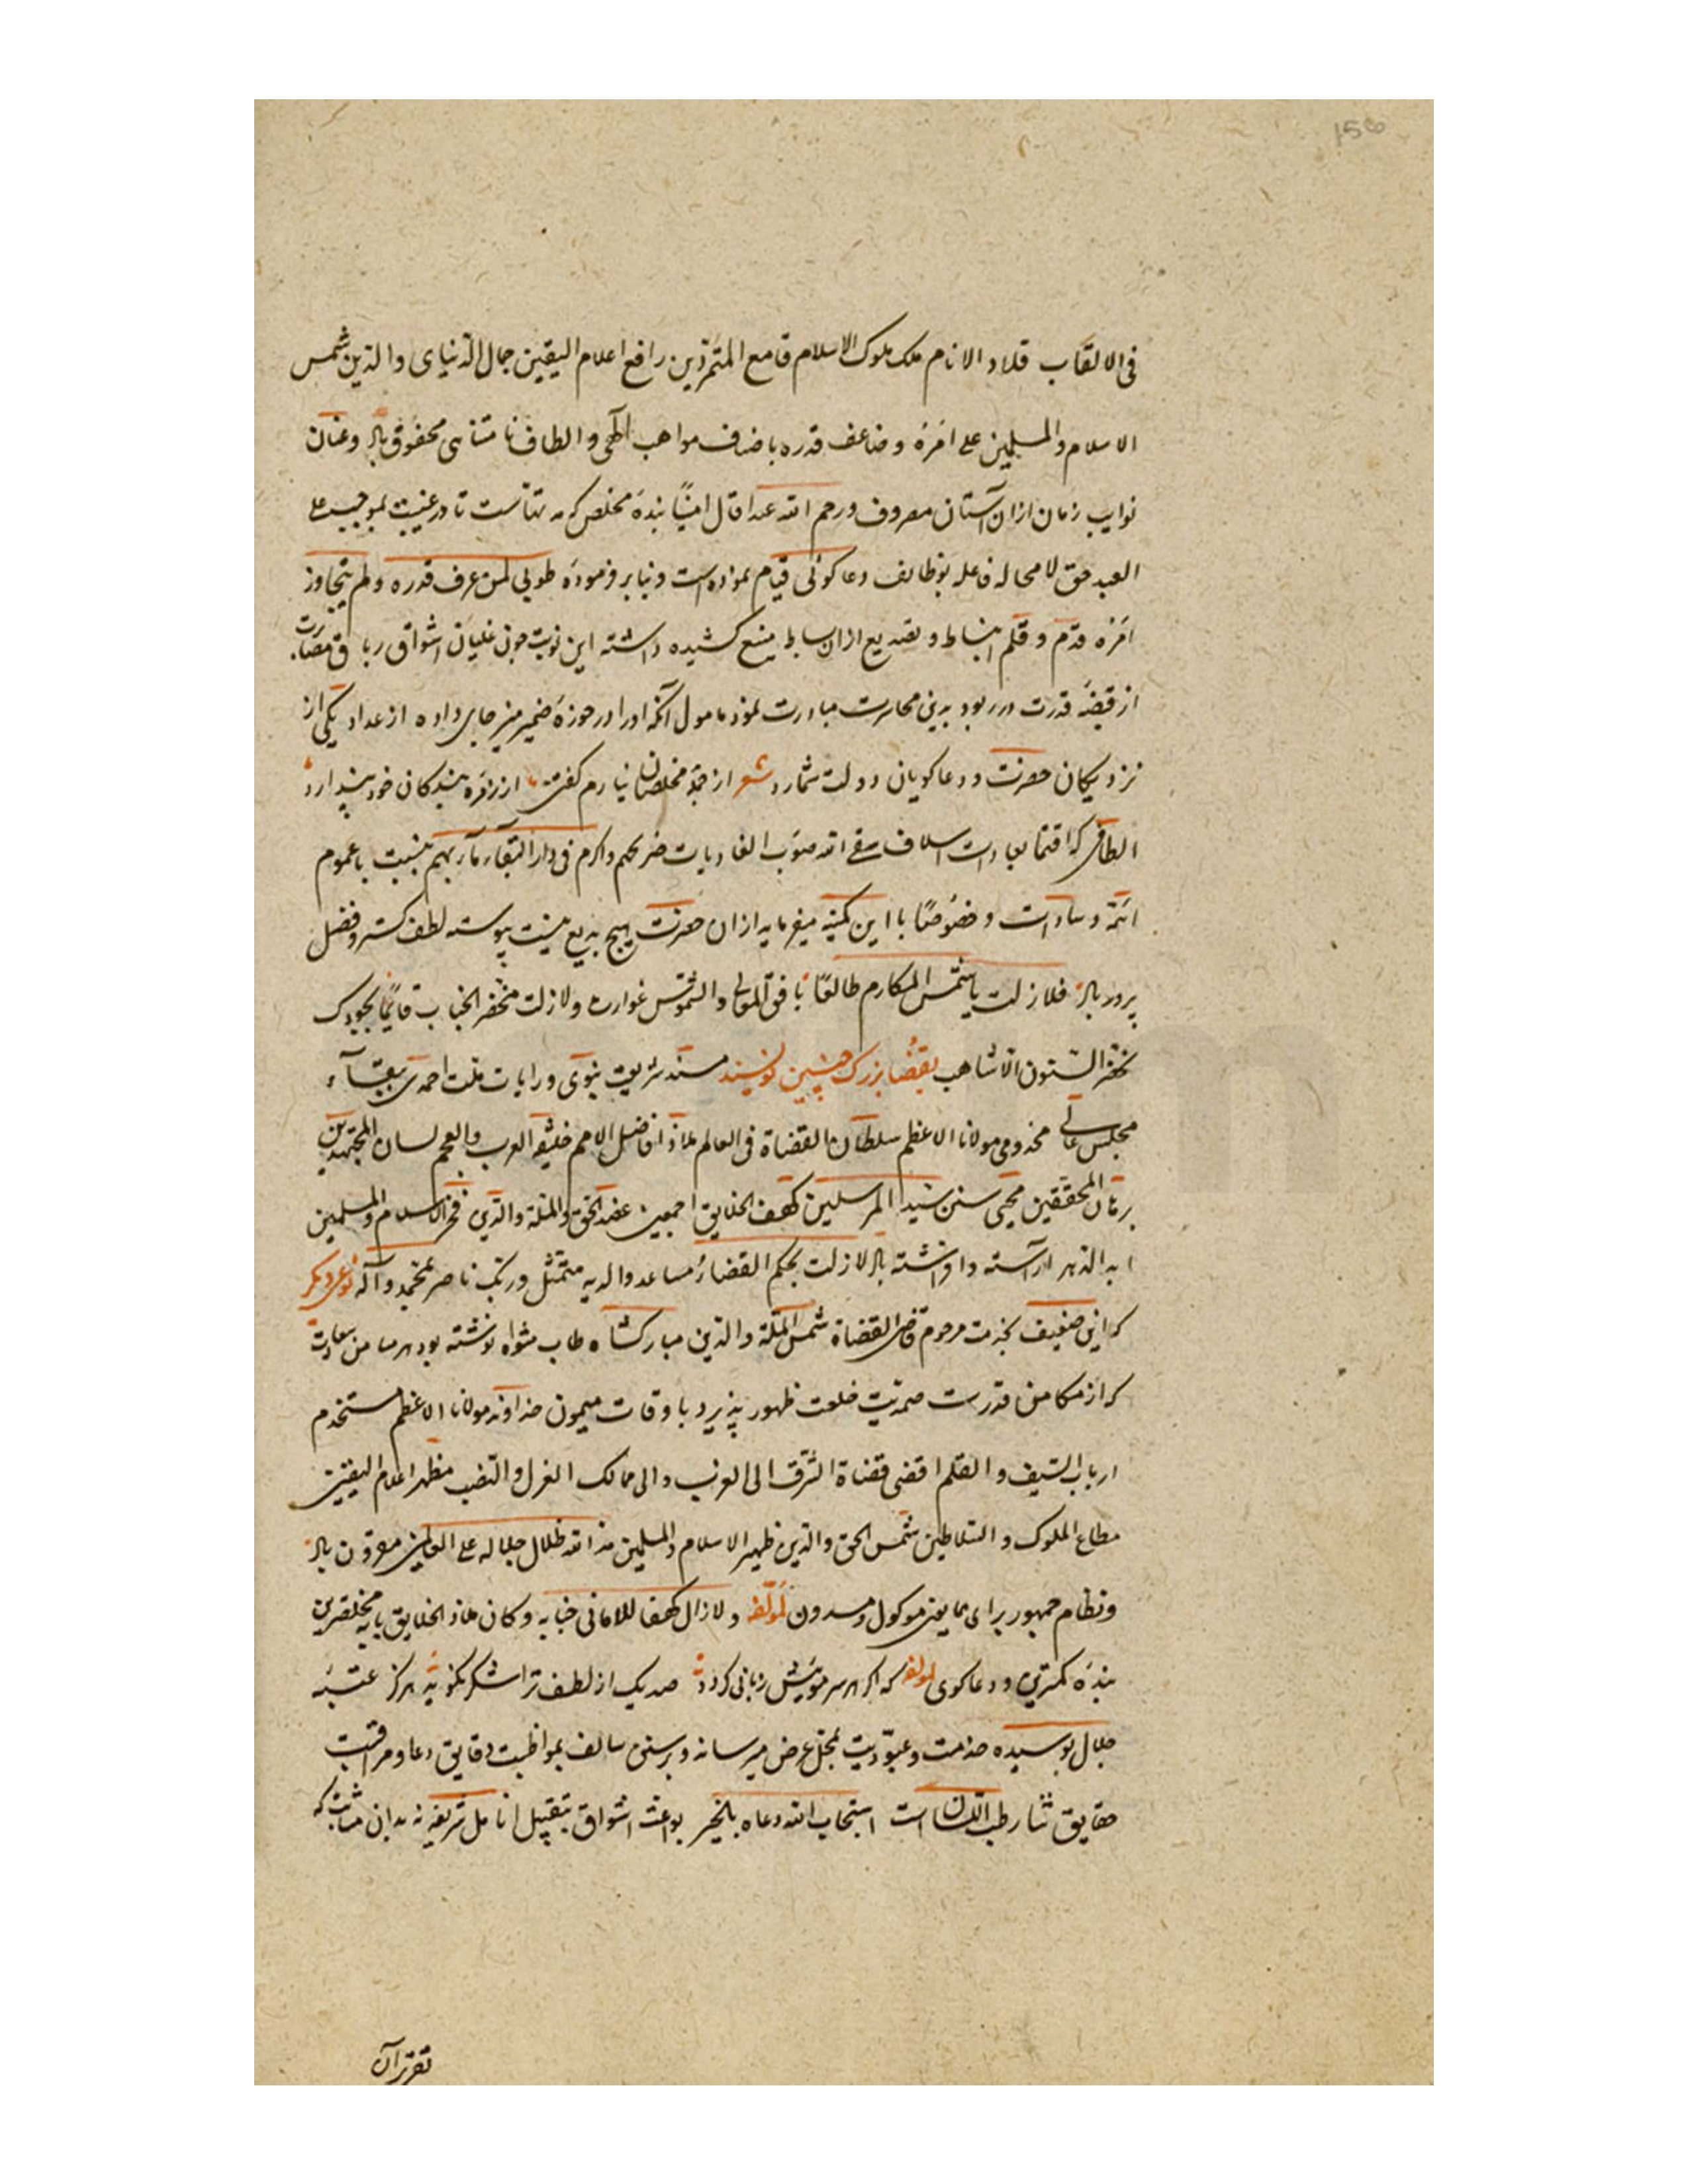 فی الالقاب قلاد الانام ملک ملوک الاسلام قامع المتمرذین رافع اعلام الیقین جمال الدنیای والدین شمس
الاسلام والمسلمین علی امره وضاعف قدره باضاف مواهب آلهی والطاف نامتناهی محفوف باد وعنان
نوایب زمان ازان آستان مصروف ورحم الله عبدا قال امینًا بندهٔ مخلص که مدتهاست تا درغیبت بموجب علی
العبد حق لامحاله فاعله بوظایف دعاکوئی قیام نموده است وبنابر فرمودهٔ طوبی لمن عرف قدره ولم یتجاوز
امره قدم وقلم انبساط وتصدیع ازان بساط منبع کشیده داشته این نوبت چون غلیان اشواق
از قبضهٔ قدرت درربود بدینی محاسرت مبادرت نمود مامول آنکه اورا درحوزهٔ ضمیر منیر جای داده از عداد یکی از
نزدیکان حضرت ودعاکویان دولت شمارد شعر از جملهٔ مخلصان نیارم کفتن از زمرهٔ بندکان خودپندارد
الطافی که اقتفا بعادات اسلاف سقی الله صوب الغادیات ضریحهم واکرم فی دارالبقاء مآربهم بنسبت باعموم
ائمه وسادات وخصوصًا بااین کمینه میفرماید ازان حضرت هیچ بدیع نیست پیوسته لطف کستر وفضل
پرور باد فلازلت یاشمس المکارم طالعًا بافق المعالی والشموس غوارب ولازلت مخضر الجناب قایمًا بجودک
تخضر السنون الاشاهب بقضا بزرک چنین نویسند مسند شریعت نبوی ورایات ملت احمدی ببقاء
مجلس عالی مخدومی مولانا الاعظم سلطان القضاة فی العالم ملاذ افاضل الامم خلیفه العرب والعجم لسان المجتهدین
برهان المحققین محیی سنن سید المرسلین کهف الخلایق اجمعین عضد الحق والمله والدین فخرالاسلام والمسلمین
ابدالدهر آراسته وافراشته باد لازلت بحکم القضاء مساعد والدیه متمثل وربک ناصر بمحمد وآله نوعی دیکر
که این ضعیف بخدمت مرحوم قاضی القضاة شمس الملة والدین مبارکشاه طاب مثواه نوشته بود هرمیامن سعادت
که از مکامن قدرت صمدیت خلعت ظهور پذیرد باوقات میمون خداوند مولانا الاعظم مستخدم
ارباب السیف والقلم اقضی قضاة الشرق الی الغرب والی ممالک العزل والنصب مظهر اعلام الیقین
مطاع الملوک والسلاطین شمس الحق والدین ظهیر الاسلام والمسلمین مدالله ظلال جلاله علی العالمین مقرون باد
ونظام جمهور برای همایون موکول لمولفه ولازال کهفا للامانی جنابه وکان ملاذ الخلایق بابه مخلصترین
بندهٔ کمترین ودعاکوی لمولفه که اکر هر سر مویش زبانی کردد صدیک از لطف ترا شکر نکوید هرکز عتبهٔ
جلال بوسیده خدمت وعبودیت بمحل عرض میرساند وبرسنن سالف بمواظبت دقایق دعا ومراقبت
حقایق ثنا رطب اللسان است استجاب الله دعاه بالخیر بواعث اشواق بتقبیل انامل شریفه نه بدان مثابت که
تقریر آن